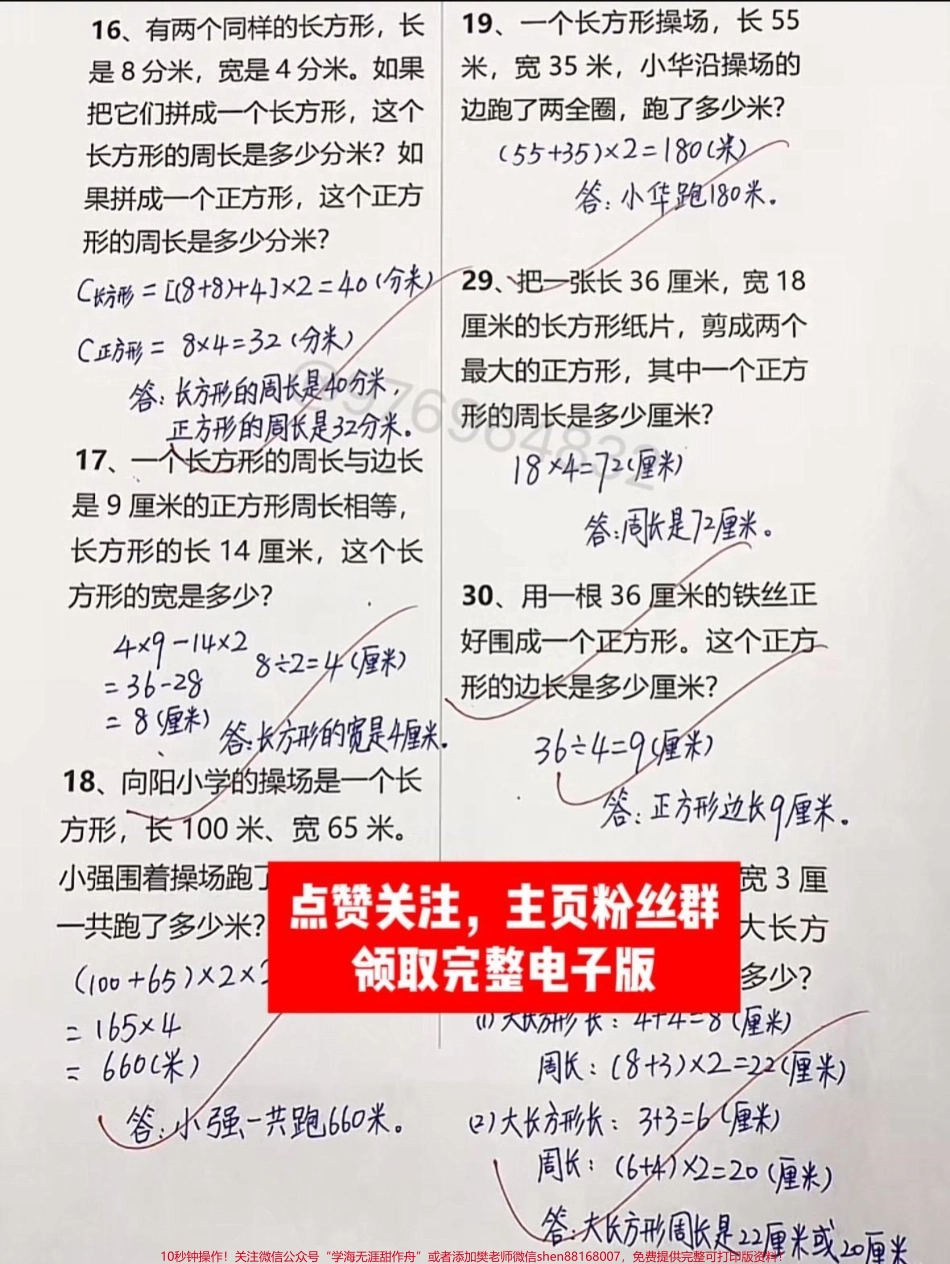 16、有两个同样的长方形，长
是8分米，宽是4分米。如果
把它们拼成一个长方形，这个
长方形的周长是多少分米？如
果拼成一个正方形，这个正方
形的周长是多少分米？
C长方形 = [(8+8)+4]×2=40(分米)
C正方形 = 8×4=32(分米)
答：长方形的周长是40分米，
正方形的周长是32分米。
17、一个长方形的周长与边长
是9厘米的正方形周长相等，
长方形的长14厘米，这个长
方形的宽是多少？
4×9-14×2
=36-28
=8(厘米)
8÷2=4(厘米)
答：长方形的宽是4厘米.
18、向阳小学的操场是一个长
方形，长100米、宽65米。
小强围着操场跑了
一共跑了多少米？
(100+65)×2×2
=165×4
=660(米)
答：小强一共跑660米。
19、一个长方形操场，长55
米，宽35米，小华沿操场的
边跑了两全圈，跑了多少米？
(55+35)×2=180(米)
答：小华跑180米。
29、把一张长36厘米，宽18
厘米的长方形纸片，剪成两个
最大的正方形，其中一个正方
形的周长是多少厘米？
18×4=72(厘米)
答：周长是72厘米。
30、用一根36厘米的铁丝正
好围成一个正方形。这个正方
形的边长是多少厘米？
36÷4=9(厘米)
答：正方形边长9厘米。
宽3厘
大长方
多少？
(1)大长方形长：4+4=8(厘米)
周长：(8+3)×2=22(厘米)
(2)大长方形长：3+3=6(厘米)
周长：(6+4)×2=20(厘米)
答：大长方形周长是22厘米或20厘米
@976964832
点赞关注，主页粉丝群
领取完整电子版
10秒钟操作！关注微信公众号“学海无涯甜作舟”或者添加樊老师微信shen88168007，免费提供完整可打印版资料！